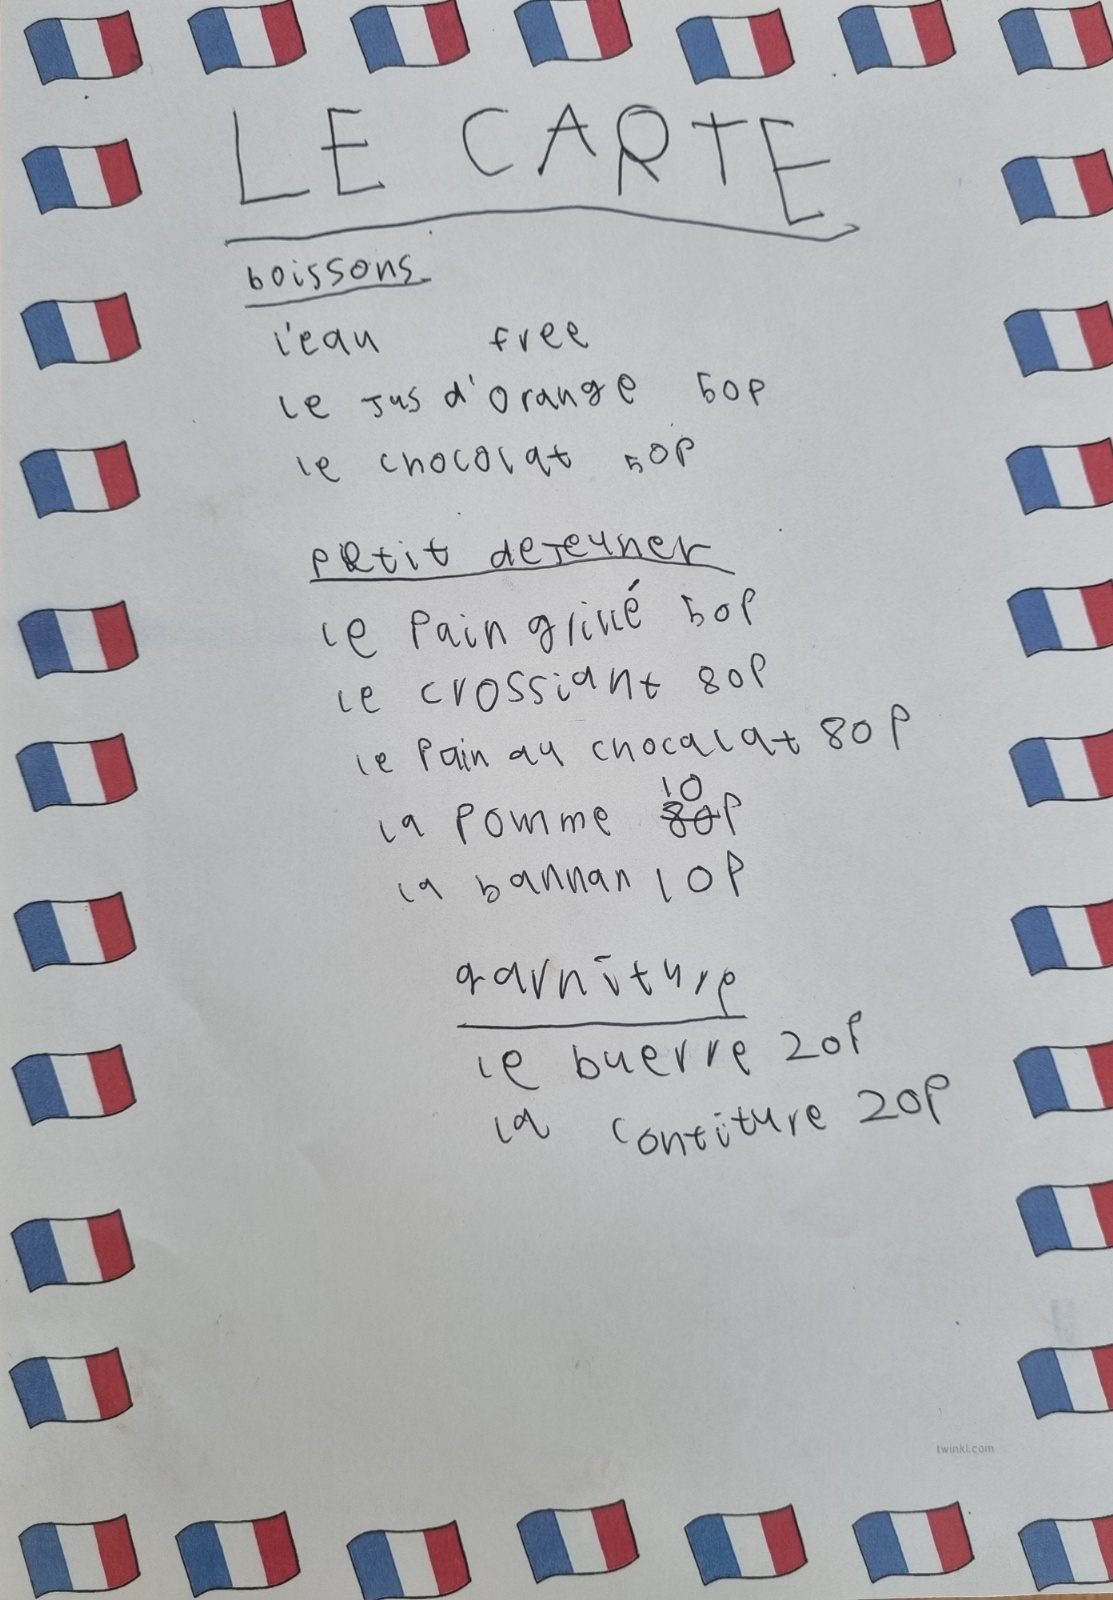 LE CARTE
boissons
l'eau free
le jus d'orange 50p
le chocolat 50p
petit dejeuner
le Pain grillé 50p
le crossiant 80p
le Pain au chocalat 80p
la Pomme 10 80p
la bannan 10p
garniture
le buerre 20p
la Contiture 20p
twinkl.com